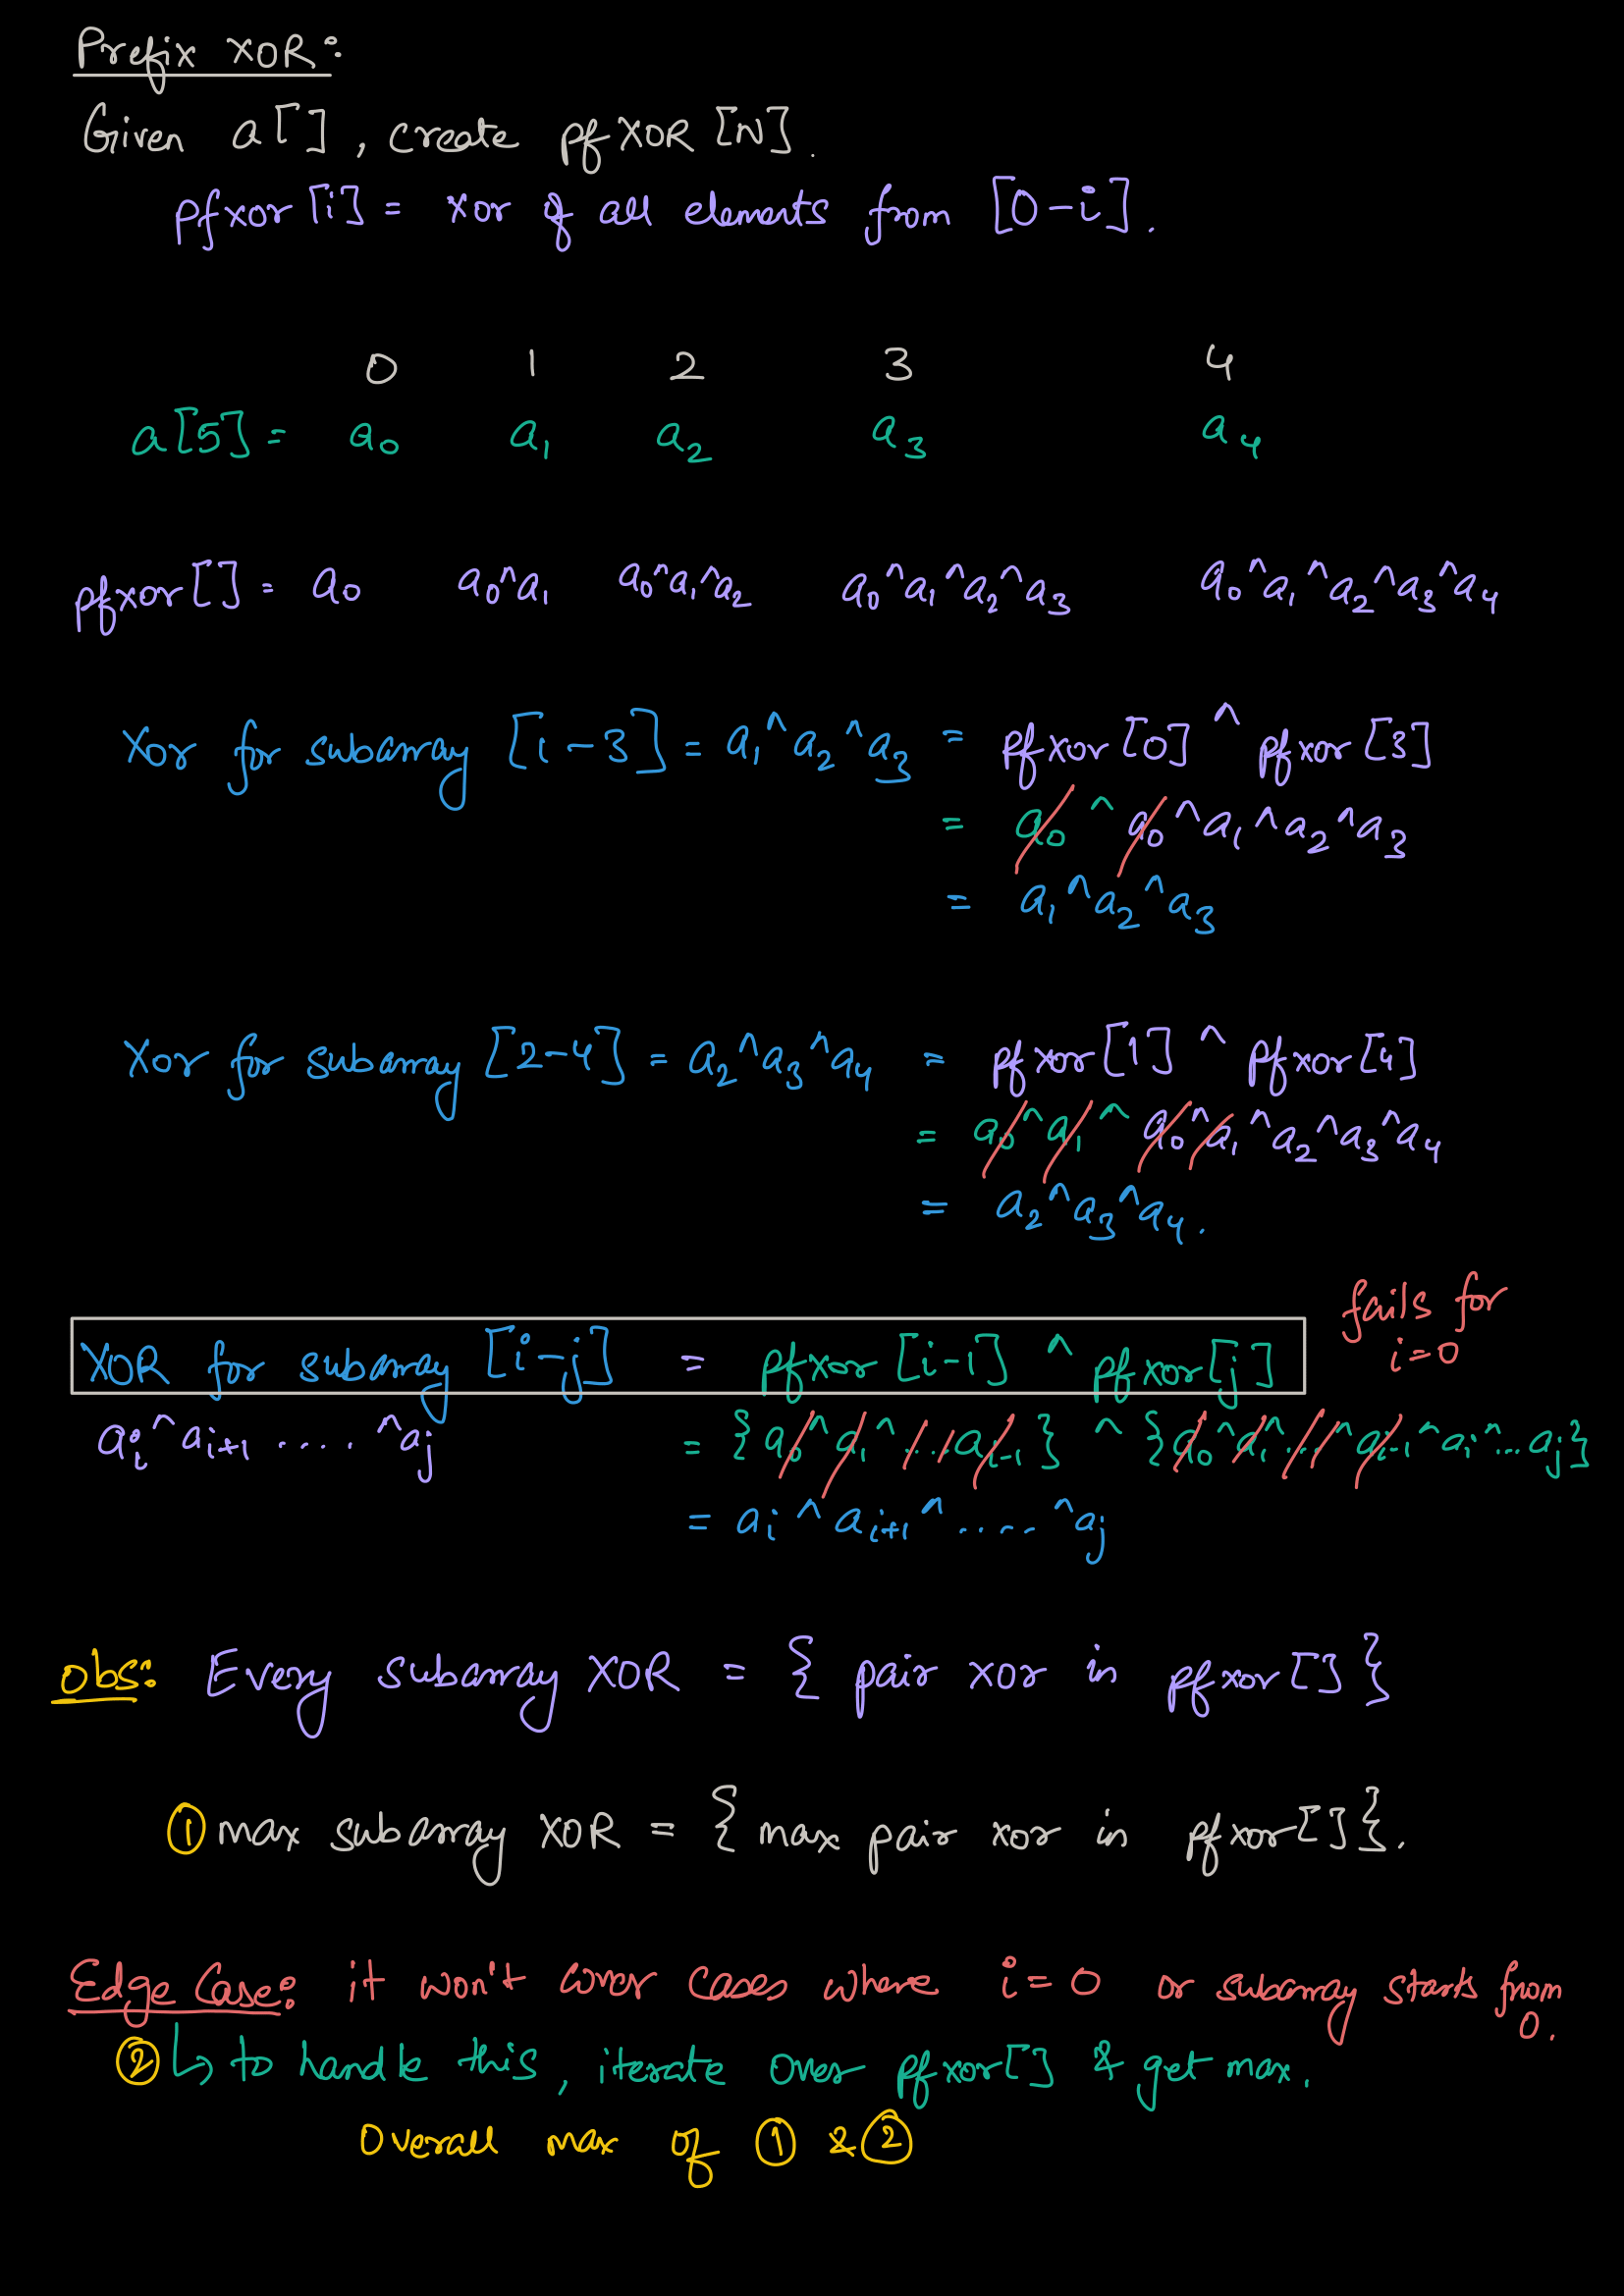 Prefix XOR:
Given a[], create pfXOR[N].
pfxor[i] = xor of all elements from [0-i].
0 1 2 3 4
a[5] = a₀ a₁ a₂ a₃ a₄
pfxor[] = a₀ a₀^a₁ a₀^a₁^a₂ a₀^a₁^a₂^a₃ a₀^a₁^a₂^a₃^a₄
Xor for subarray [1-3] = a₁^a₂^a₃ = pfxor[0] ^ pfxor[3]
= a₀ ^ a₀^a₁^a₂^a₃
= a₁^a₂^a₃
Xor for subarray [2-4] = a₂^a₃^a₄ = pfxor[1] ^ pfxor[4]
= a₀^a₁ ^ a₀^a₁^a₂^a₃^a₄
= a₂^a₃^a₄.
fails for
i=0
XOR for subarray [i-j] = pfxor[i-1] ^ pfxor[j]
aᵢ^aᵢ₊₁ .... ^aⱼ = {a₀^a₁^....aᵢ₋₁} ^ {a₀^a₁^...^aᵢ₋₁^aᵢ^...aⱼ}
= aᵢ^aᵢ₊₁^.....^aⱼ
obs: Every subarray XOR = { pair xor in pfxor[] }
① max subarray XOR = { max pair xor in pfxor[] }.
Edge Case: it won't cover cases where i=0 or subarray starts from
0.
② ↳ to handle this, iterate over pfxor[] & get max.
Overall max of ① & ②